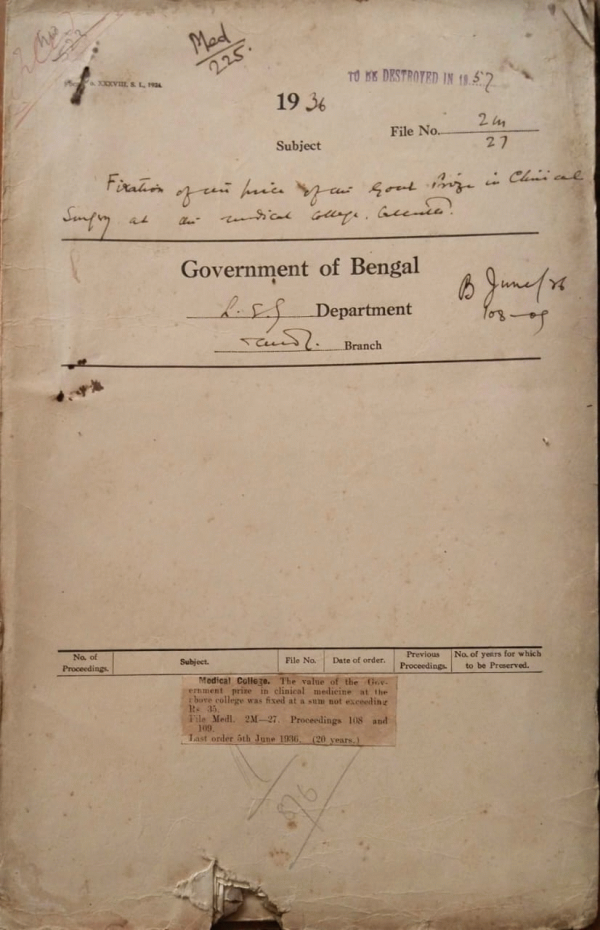 Med
225.
XXXVIII, S. I., 1934.
TO BE DESTROYED IN 1957
1936
File No. 2M
27
Subject
Fixation of the price of the Govt Prize in Clinical
Surgery at the medical College, Calcutta.
Government of Bengal
L. S. G Department
Medl. Branch
B June/36
108-09
No. of Proceedings.
Subject.
File No.
Date of order.
Previous Proceedings.
No. of years for which to be Preserved.
Medical College. The value of the Gov-
ernment prize in clinical medicine at the
above college was fixed at a sum not exceeding
Rs. 35.
File Medl. 2M—27. Proceedings 108 and
109.
Last order 5th June 1936. (20 years.)